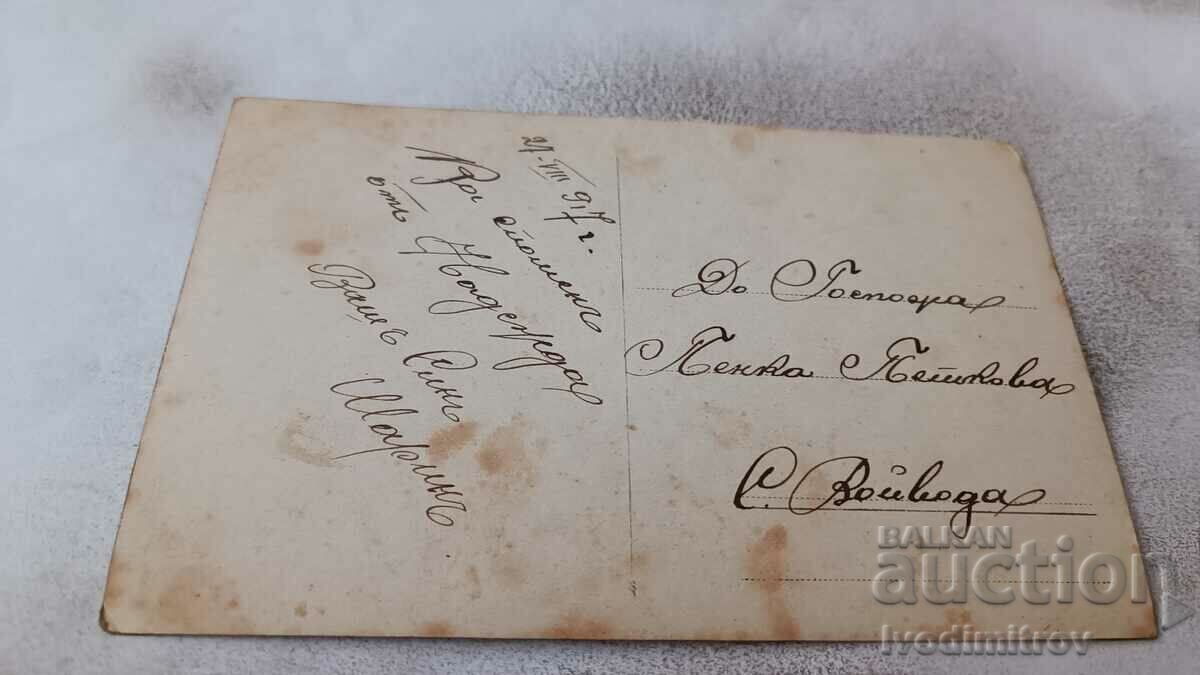 27-VIII 917 г.
За споменъ
отъ Надежда
Вашъ Синъ
Маринъ.
До Госпожа
Пенка Пешкова
С. Войвода
BALKAN
auction
Ivodimitrov